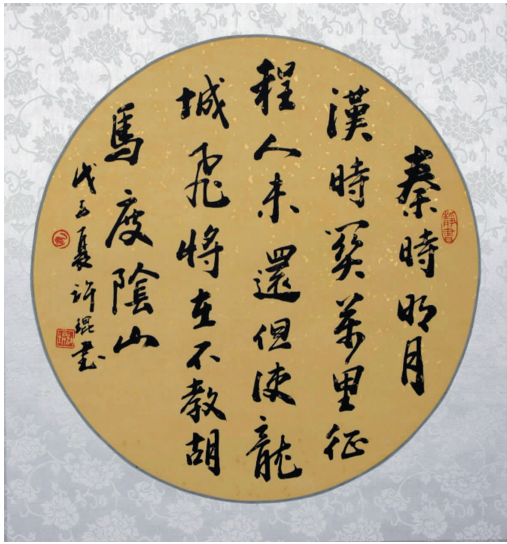 秦時明月
漢時關萬里征
程人未還但使龍
城飛將在不教胡
馬度陰山
戊子夏許琨書